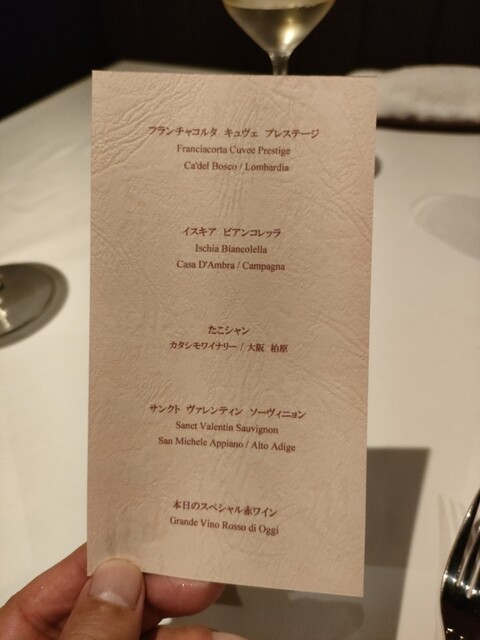 フランチャコルタ キュヴェ プレステージ
Franciacorta Cuvee Prestige
Ca'del Bosco / Lombardia
イスキア ビアンコレッラ
Ischia Biancolella
Casa D'Ambra / Campagna
たこシャン
カタシモワイナリー / 大阪 柏原
サンクト ヴァレンティン ソーヴィニョン
Sanct Valentin Sauvignon
San Michele Appiano / Alto Adige
本日のスペシャル赤ワイン
Grande Vino Rosso di Oggi